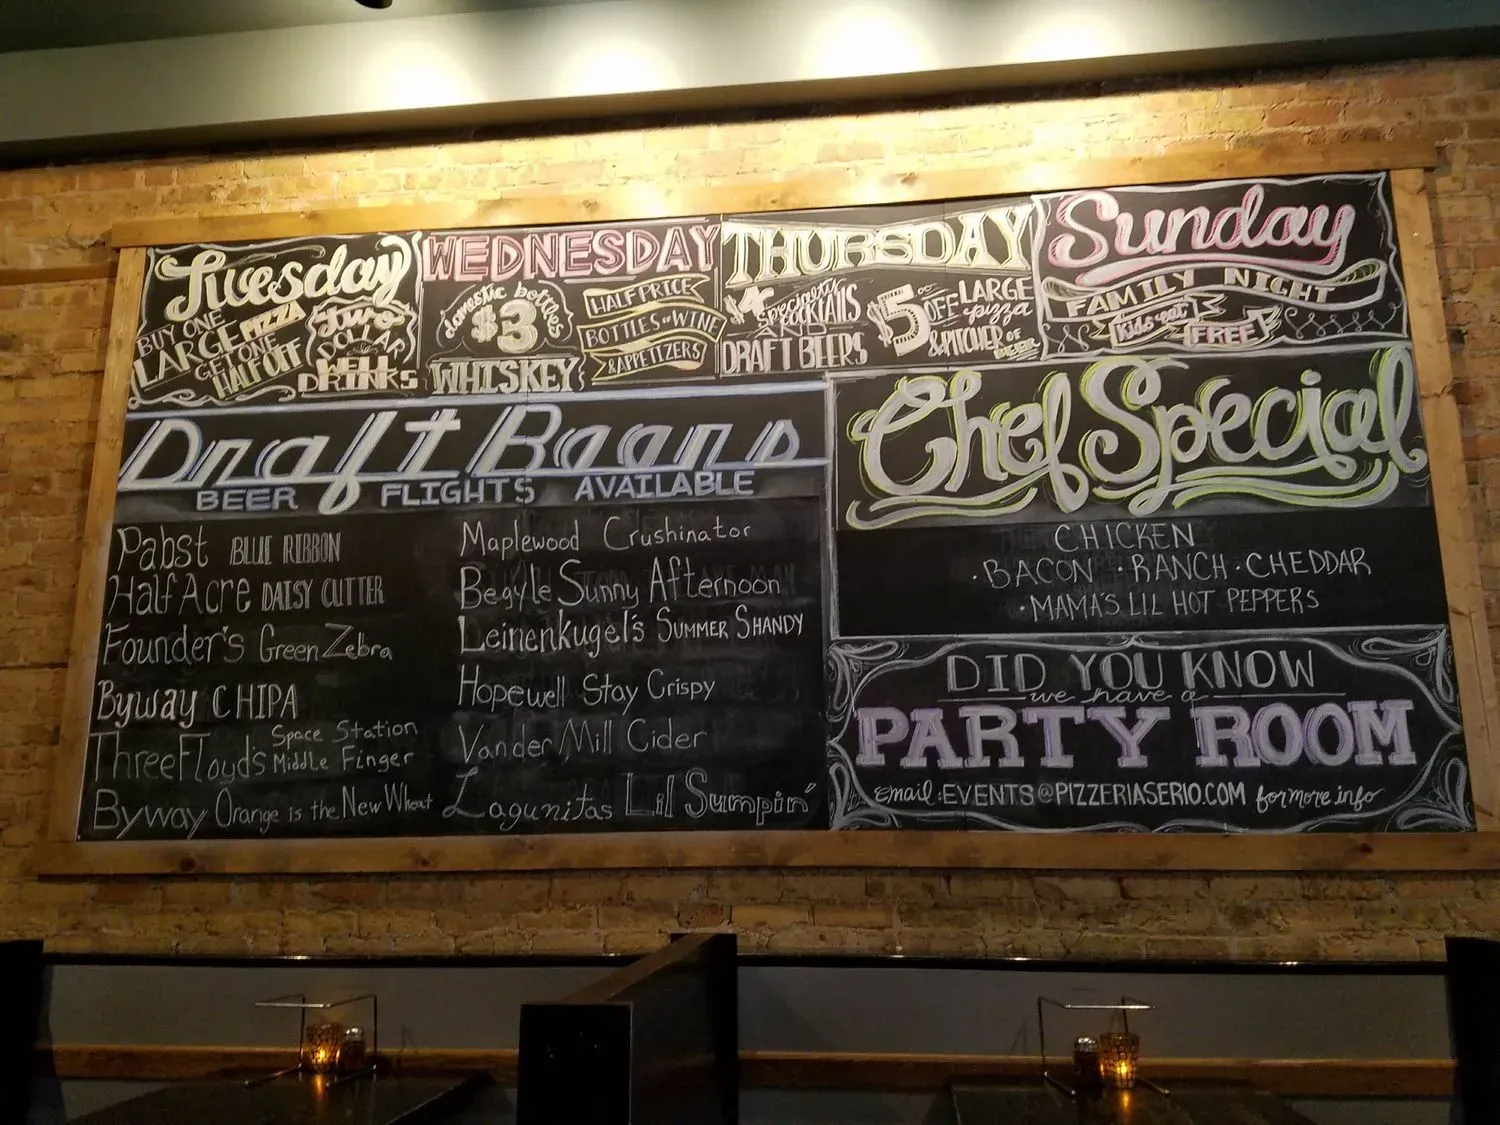 Tuesday
BUY ONE
LARGE PIZZA
GET ONE
HALF OFF
Two
DOLLAR
WELL
DRINKS
WEDNESDAY
domestic bottles
$3
WHISKEY
HALF PRICE
BOTTLES OF WINE
& APPETIZERS
THURSDAY
$4 specialty
COCKTAILS
AND
DRAFT BEERS
$5.00 OFF LARGE
pizza
& PITCHER OF
BEER
Sunday
FAMILY NIGHT
Kids eat
FREE
Draft Beers
BEER FLIGHTS AVAILABLE
Pabst BLUE RIBBON
Half Acre DAISY CUTTER
Founder's Green Zebra
Byway CHIPA
Three Floyd's Space Station
Middle Finger
Byway Orange is the New Wheat
Maplewood Crushinator
Begyle Sunny Afternoon
Leinenkugel's SUMMER SHANDY
Hopewell Stay Crispy
Vander Mill Cider
Lagunitas Lil Sumpin'
Chef Special
CHICKEN
· BACON · RANCH · CHEDDAR
· MAMA'S LIL HOT PEPPERS
DID YOU KNOW
we have a
PARTY ROOM
email: EVENTS@PIZZERIASERIO.COM for more info